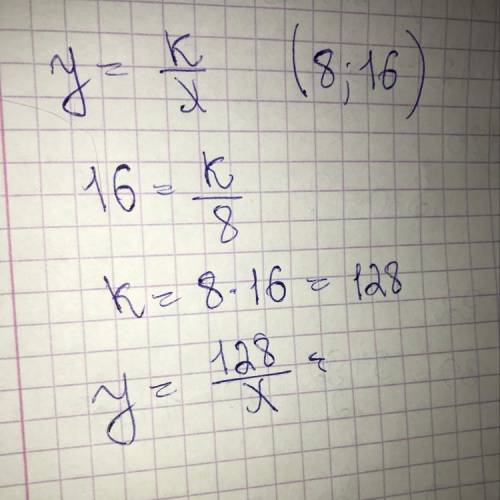 y = k/x (8;16)
16 = k/8
k = 8·16 = 128
y = 128/x